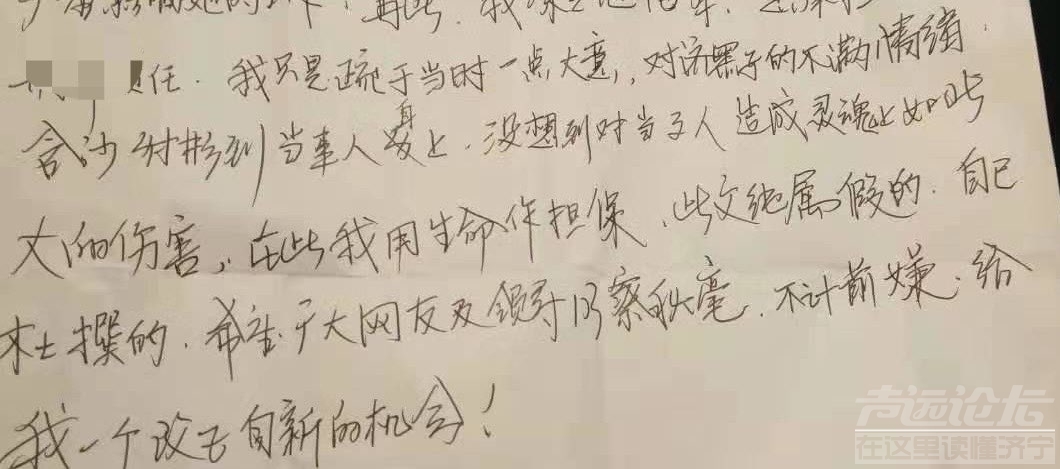 的工作,再此.我
任.我只是疏于当时一点大意,,对济黑子的不满情绪,
含沙射影到当事人身上.没想到对当事人造成灵魂上如此
大的伤害,,在此我用生命作担保、此文纯属假的.自己
杜撰的.希望广大网友及领导明察秋毫.不计前嫌.给
我一个改过自新的机会!
声远论坛
在这里读懂济宁